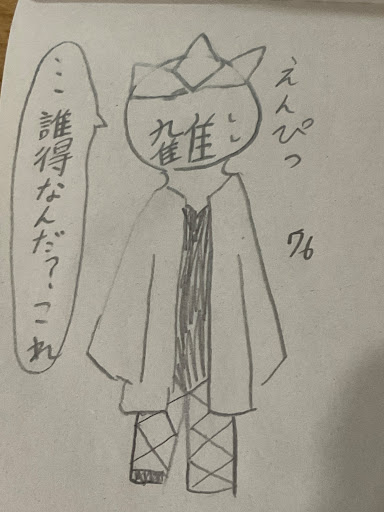 えんぴつ
76
こ 誰得なんだ?これ